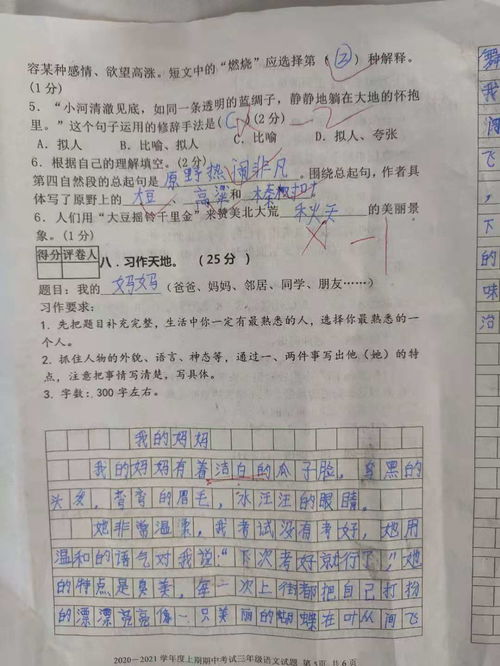 容某种感情、欲望高涨。短文中的“燃烧”应选择第（②）种解释。
(1分)
5．“小河清澈见底，如同一条透明的蓝绸子，静静地躺在大地的怀抱
里。”这个句子运用的修辞手法是(C)(2分)
A．拟人 B．比喻、拟人 C．比喻 D．拟人、夸张
6．根据自己的理解填空。(2分)
第四自然段的总起句是 原野热闹非凡 。围绕总起句，作者具
体写了原野上的 大豆 、高粱 和
6．人们用“大豆摇铃千里金”来赞美北大荒 秋天 的美丽景
象。(1分)
得分 评卷人
八．习作天地。（25分）
题目：我的 妈妈 （爸爸、妈妈、邻居、同学、朋友……）
习作要求：
1．先把题目补充完整，生活中你一定有最熟悉的人，选择你最熟悉的一
个人。
2．抓住人物的外貌、语言、神态等，通过一、两件事写出他（她）的特
点，注意把事情写清楚，写具体。
3．字数：300字左右。
我的妈妈
我的妈妈有着洁白的瓜子脸，乌黑的
头发，弯弯的眉毛，水汪汪的眼睛。
她非常温柔，我考试没有考好，她用
温和的语气对我说：“下次考好就行了！”她
的特点是臭美，每一次上街都把自己打扮
的漂漂亮亮像一只美丽的蝴蝶在叶从间飞
舞
我
飞
，
下
的
味
2020－2021学年度上期期中考试三年级语文试题 第5页 共6页